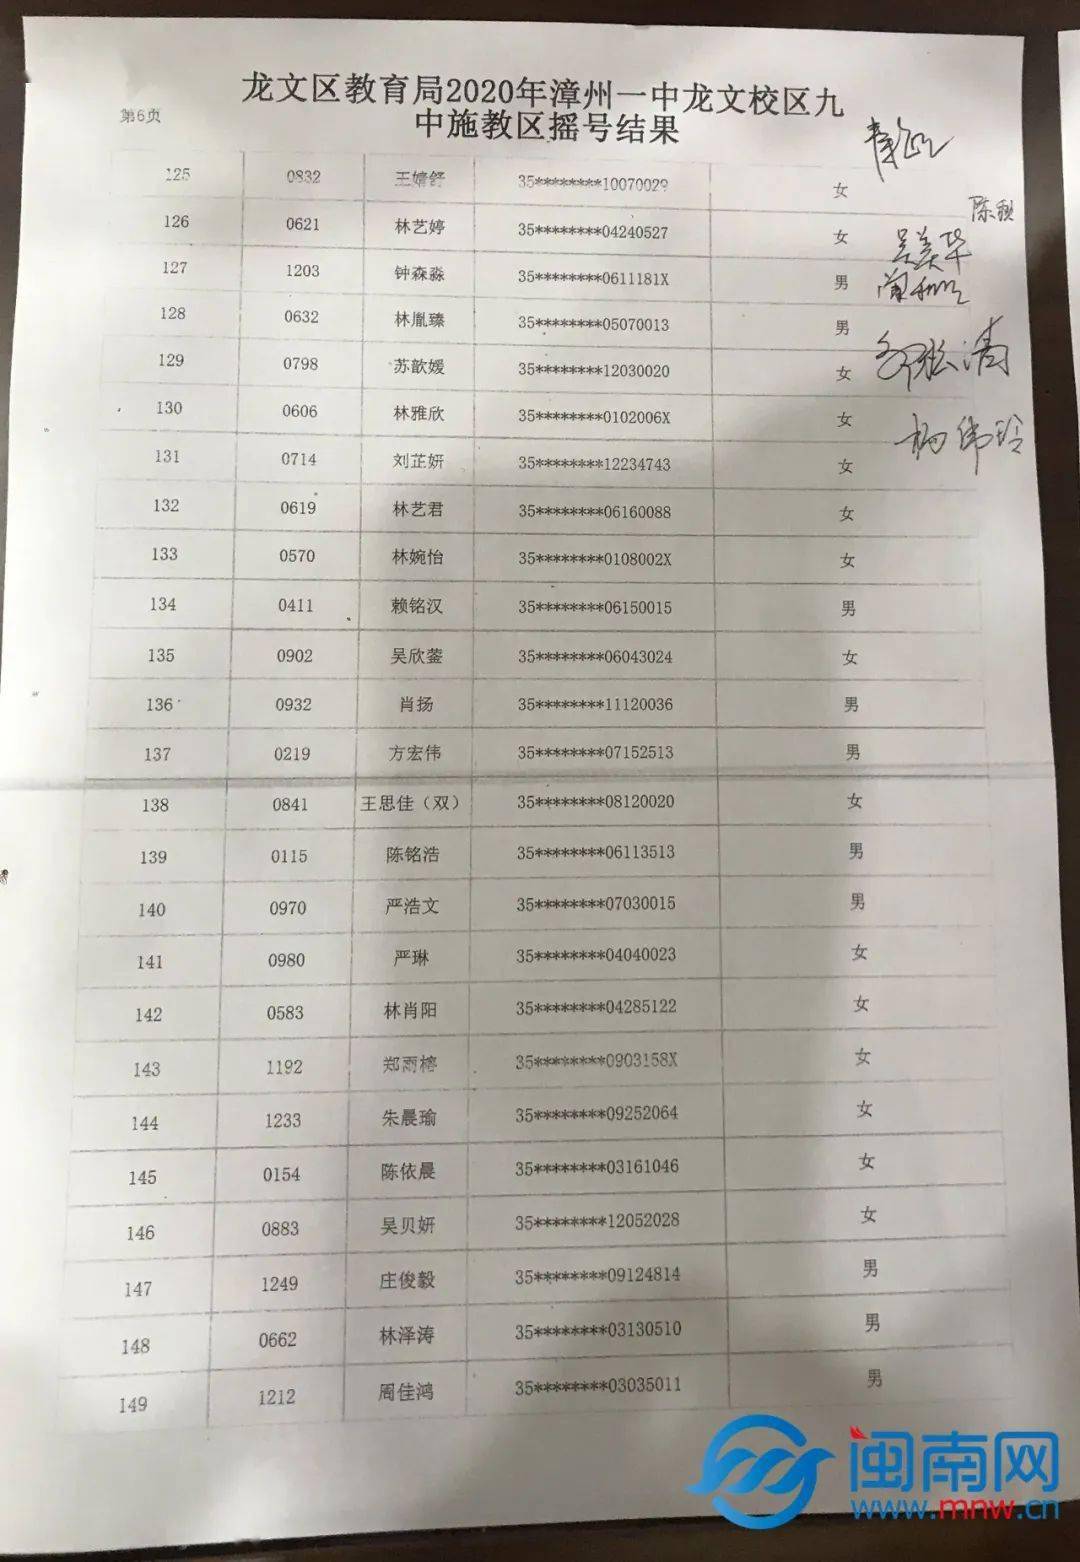 龙文区教育局2020年漳州一中龙文校区九
第6页
中施教区摇号结果
125 0832 王婧舒 35********10070029 女
陈
126 0621 林艺婷 35********04240527 女
吴美华
127 1203 钟森淼 35********0611181X 男
128 0632 林胤臻 35********05070013 男
129 0798 苏歆媛 35********12030020 女
130 0606 林雅欣 35********0102006X 女
杨伟玲
131 0714 刘芷妍 35********12234743 女
132 0619 林艺君 35********06160088 女
133 0570 林婉怡 35********0108002X 女
134 0411 赖铭汉 35********06150015 男
135 0902 吴欣蓥 35********06043024 女
136 0932 肖扬 35********11120036 男
137 0219 方宏伟 35********07152513 男
138 0841 王思佳（双） 35********08120020 女
139 0115 陈铭浩 35********06113513 男
140 0970 严浩文 35********07030015 男
141 0980 严琳 35********04040023 女
142 0583 林肖阳 35********04285122 女
143 1192 郑雨榕 35********0903158X 女
144 1233 朱晨瑜 35********09252064 女
145 0154 陈依晨 35********03161046 女
146 0883 吴贝妍 35********12052028 女
147 1249 庄俊毅 35********09124814 男
148 0662 林泽涛 35********03130510 男
149 1212 周佳鸿 35********03035011 男
闽南网
www.mnw.cn